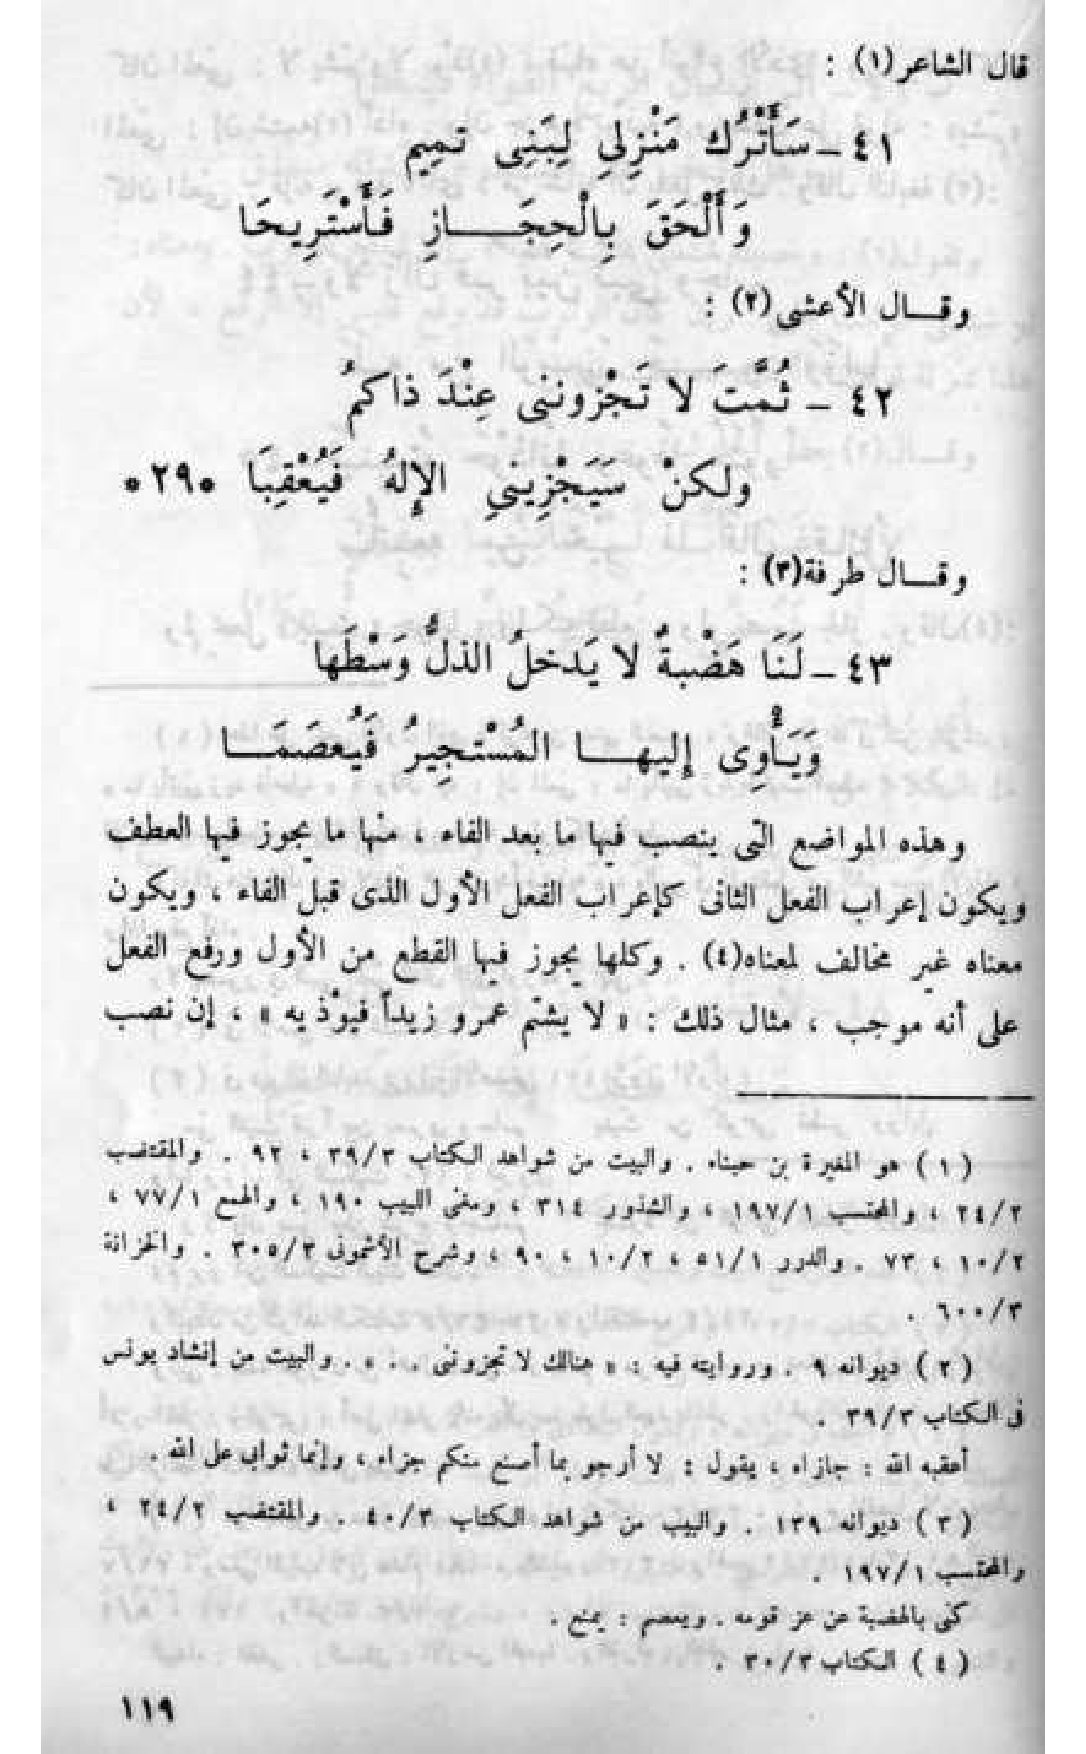 قال الشاعر(١) :
٤١ ــ سَأَتْرُك مَنْزِلِي لِبَنِى تميِمٍ
وَأَلْحَقَ بِالْحِجَـــازِ فَأَسْتَرِيحَا
وقــال الأعشى(٢) :
٤٢ ــ ثُمَّتَ لا تَجْزوننى عِنْدَ ذاكمُ
ولكنْ سَيَجْزِينيِ الإِلهُ فَيُعْقِبَا *٢٩*
وقــال طرفة(٣) :
٤٣ ــ لَنَا هَضْبةٌ لا يَدخلُ الذلُّ وَسْطَها
وَيَأْوِى إليهــا المُسْتجِيرُ فَيُعصَمَــا
وهذه المواضع التى ينصب فيها ما بعد الفاء ، منها ما يجوز فيها العطف
ويكون إعراب الفعل الثانى كإعراب الفعل الأول الذى قبل الفاء ، ويكون
معناه غير مخالف لمعناه(٤) . وكلها يجوز فيها القطع من الأول ورفع الفعل
على أنه موجب ، مثال ذلك : « لا يشتم عمرو زيداً فيؤذيه » ، إن نصب
( ١ ) هو المغيرة بن حبناء . والبيت من شواهد الكتاب ٣٩/٣ ، ٩٢ . والمقتضب
٢٤/٢ ، والمحتسب ١٩٧/١ ، والشذور ٣١٤ ، ومغنى اللبيب ١٩٠ ، والهمع ٧٧/١ ،
١٠/٢ ، ٧٣ . والدرر ٥١/١ ، ١٠/٢ ، ٩٠ ، وشرح الأشمونى ٣٠٥/٣ . والخزانة
٦٠٠/٣ .
( ٢ ) ديوانه ٩ . وروايته فيه : « هنالك لا تجزوننى . . » . والبيت من إنشاد يونس
فى الكتاب ٣٩/٣ .
أعقبه الله : جازاه ، يقول : لا أرجو بما أصنع منكم جزاء ، وإنما ثوابى على الله .
( ٣ ) ديوانه ١٣٩ . والبيب من شواهد الكتاب ٤٠/٣ . والمقتضب ٢٤/٢ ،
والمحتسب ١٩٧/١ .
كنى بالهضبة عن عز قومه . ويعصم : يمنع .
( ٤ ) الكتاب ٣٠/٣ .
١١٩